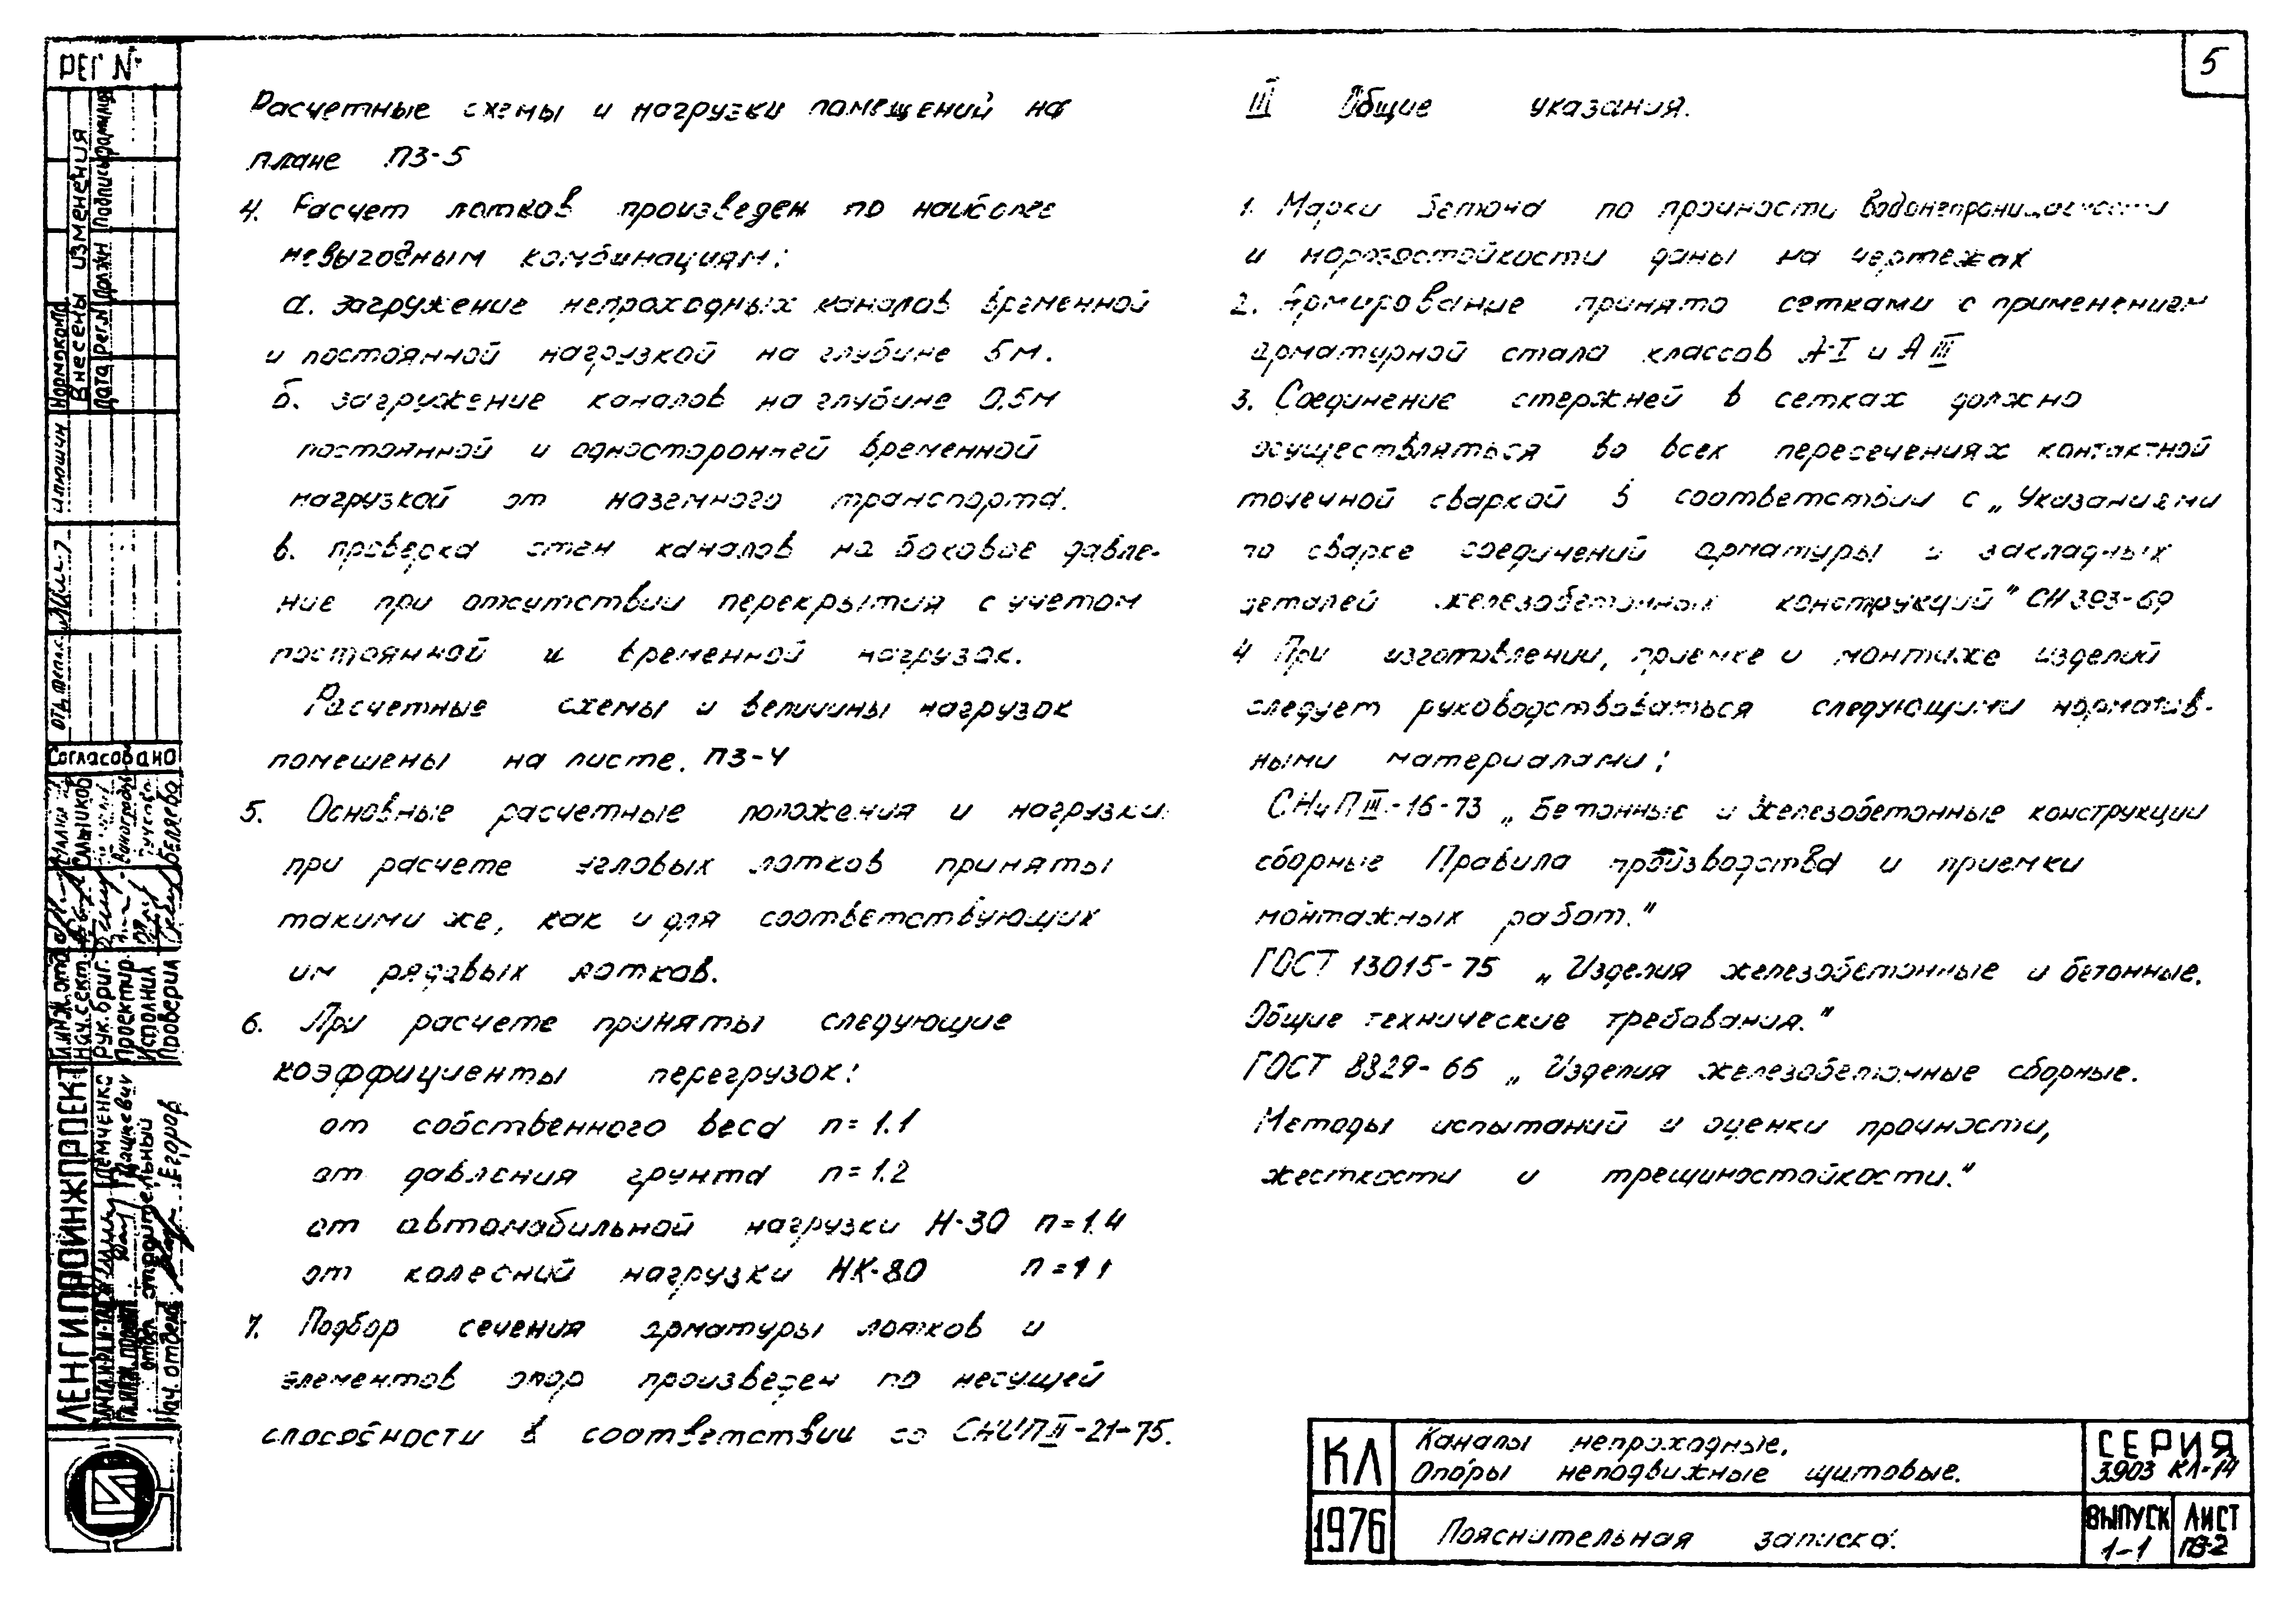 5
Расчетные схемы и нагрузки помещений на
плане ПЗ-5
4. Расчет лотков произведен по наиболее
невыгодным комбинациям:
а. загружение непроходных каналов временной
и постоянной нагрузкой на глубине 5м.
б. загружение каналов на глубине 0.5м
постоянной и односторонней временной
нагрузкой от наземного транспорта.
в. проверка стен каналов на боковое давле-
ние при отсутствии перекрытия с учетом
постоянной и временной нагрузок.
Расчетные схемы и величины нагрузок
помещены на листе. ПЗ-4
5. Основные расчетные положения и нагрузки
при расчете угловых лотков приняты
такими же, как и для соответствующих
им рядовых лотков.
6. При расчете приняты следующие
коэффициенты перегрузок:
от собственного веса n=1.1
от давления грунта n=1.2
от автомобильной нагрузки Н-30 n=1.4
от колесний нагрузки НК-80 n=1 1
7. Подбор сечения арматуры лотков и
элементов опор произведен по несущей
способности в соответствии со СНИП II-21-75.
III Общие указания.
1. Марки бетона по прочности водонепроницаемости
и морозостойкости даны на чертежах
2. Армирование принято сетками с применением
арматурной стала классов А-I и А III
3. Соединение стержней в сетках должно
осуществляться во всех пересечениях контактной
точечной сваркой в соответствии с „Указаниями
по сварке соединений арматуры и закладных
деталей железобетонных конструкций" СН 393-69
4 При изготовлении, приемке и монтаже изделий
следует руководствоваться следующими норматив-
ными материалами:
СНиП III-16-73 „Бетонные и железобетонные конструкции
сборные Правила производства и приемки
монтажных работ."
ГОСТ 13015-75 „Изделия железобетонные и бетонные.
Общие технические требования."
ГОСТ 8829-66 „Изделия железобетонные сборные.
Методы испытаний и оценки прочности,
жесткости и трещиностойкости."
КЛ
Каналы непроходные.
Опоры неподвижные щитовые.
СЕРИЯ
3.903 КЛ-14
1976
Пояснительная записка.
ВЫПУСК
1-1
ЛИСТ
ПЗ-2
РЕГ №
Внесены изменения
Дата Рег.№ Должн Подпись Фамилия
Нормоконтр
Согласовано
Нач.сект.
Рук.бриг.
Проектир.
Исполнил
Проверил
Беляева
ЛЕНГИПРОИНЖПРОЕКТ
Нач. отдела
Егоров